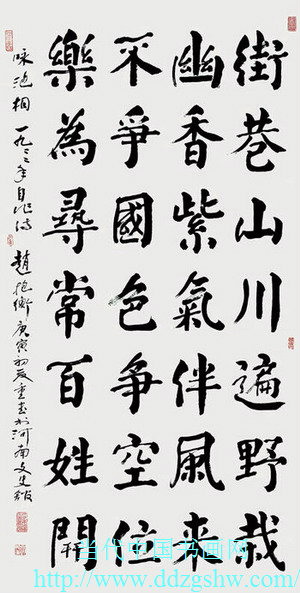 街巷山川遍野栽
幽香紫氣伴風来
不爭國色爭空位
樂為尋常百姓開
咏泡桐 一九 年自作诗 趙抱衡 庚寅初夏重書於河南文史館
当代中国书画网
http://www.ddzgshw.com/